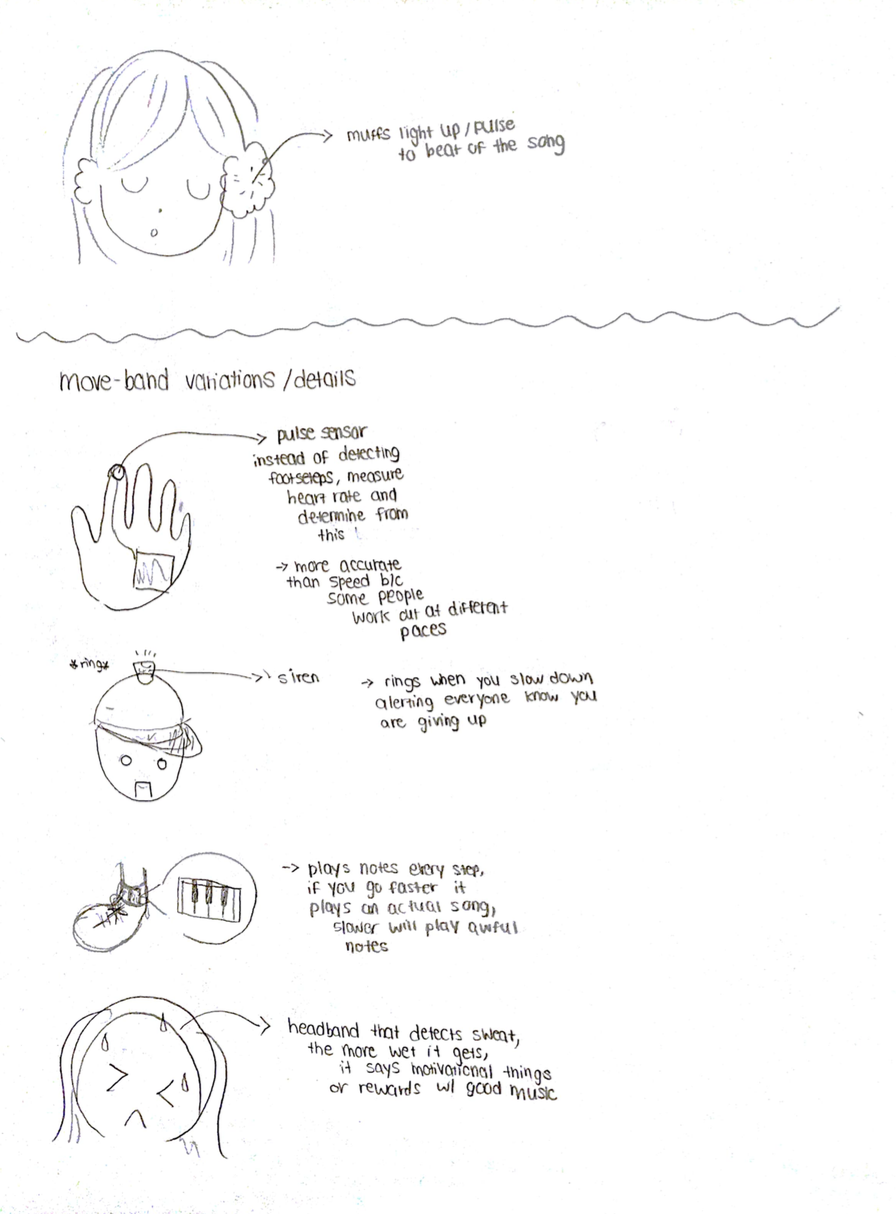 muffs light up / pulse
to beat of the song
move-band variations / details
pulse sensor
instead of detecting
footsteps, measure
heart rate and
determine from
this
→ more accurate
than speed b/c
some people
work out at different
paces
*ring*
siren
→ rings when you slow down
alerting everyone know you
are giving up
→ plays notes every step,
if you go faster it
plays an actual song,
slower will play awful
notes
headband that detects sweat,
the more wet it gets,
it says motivational things
or rewards w/ good music